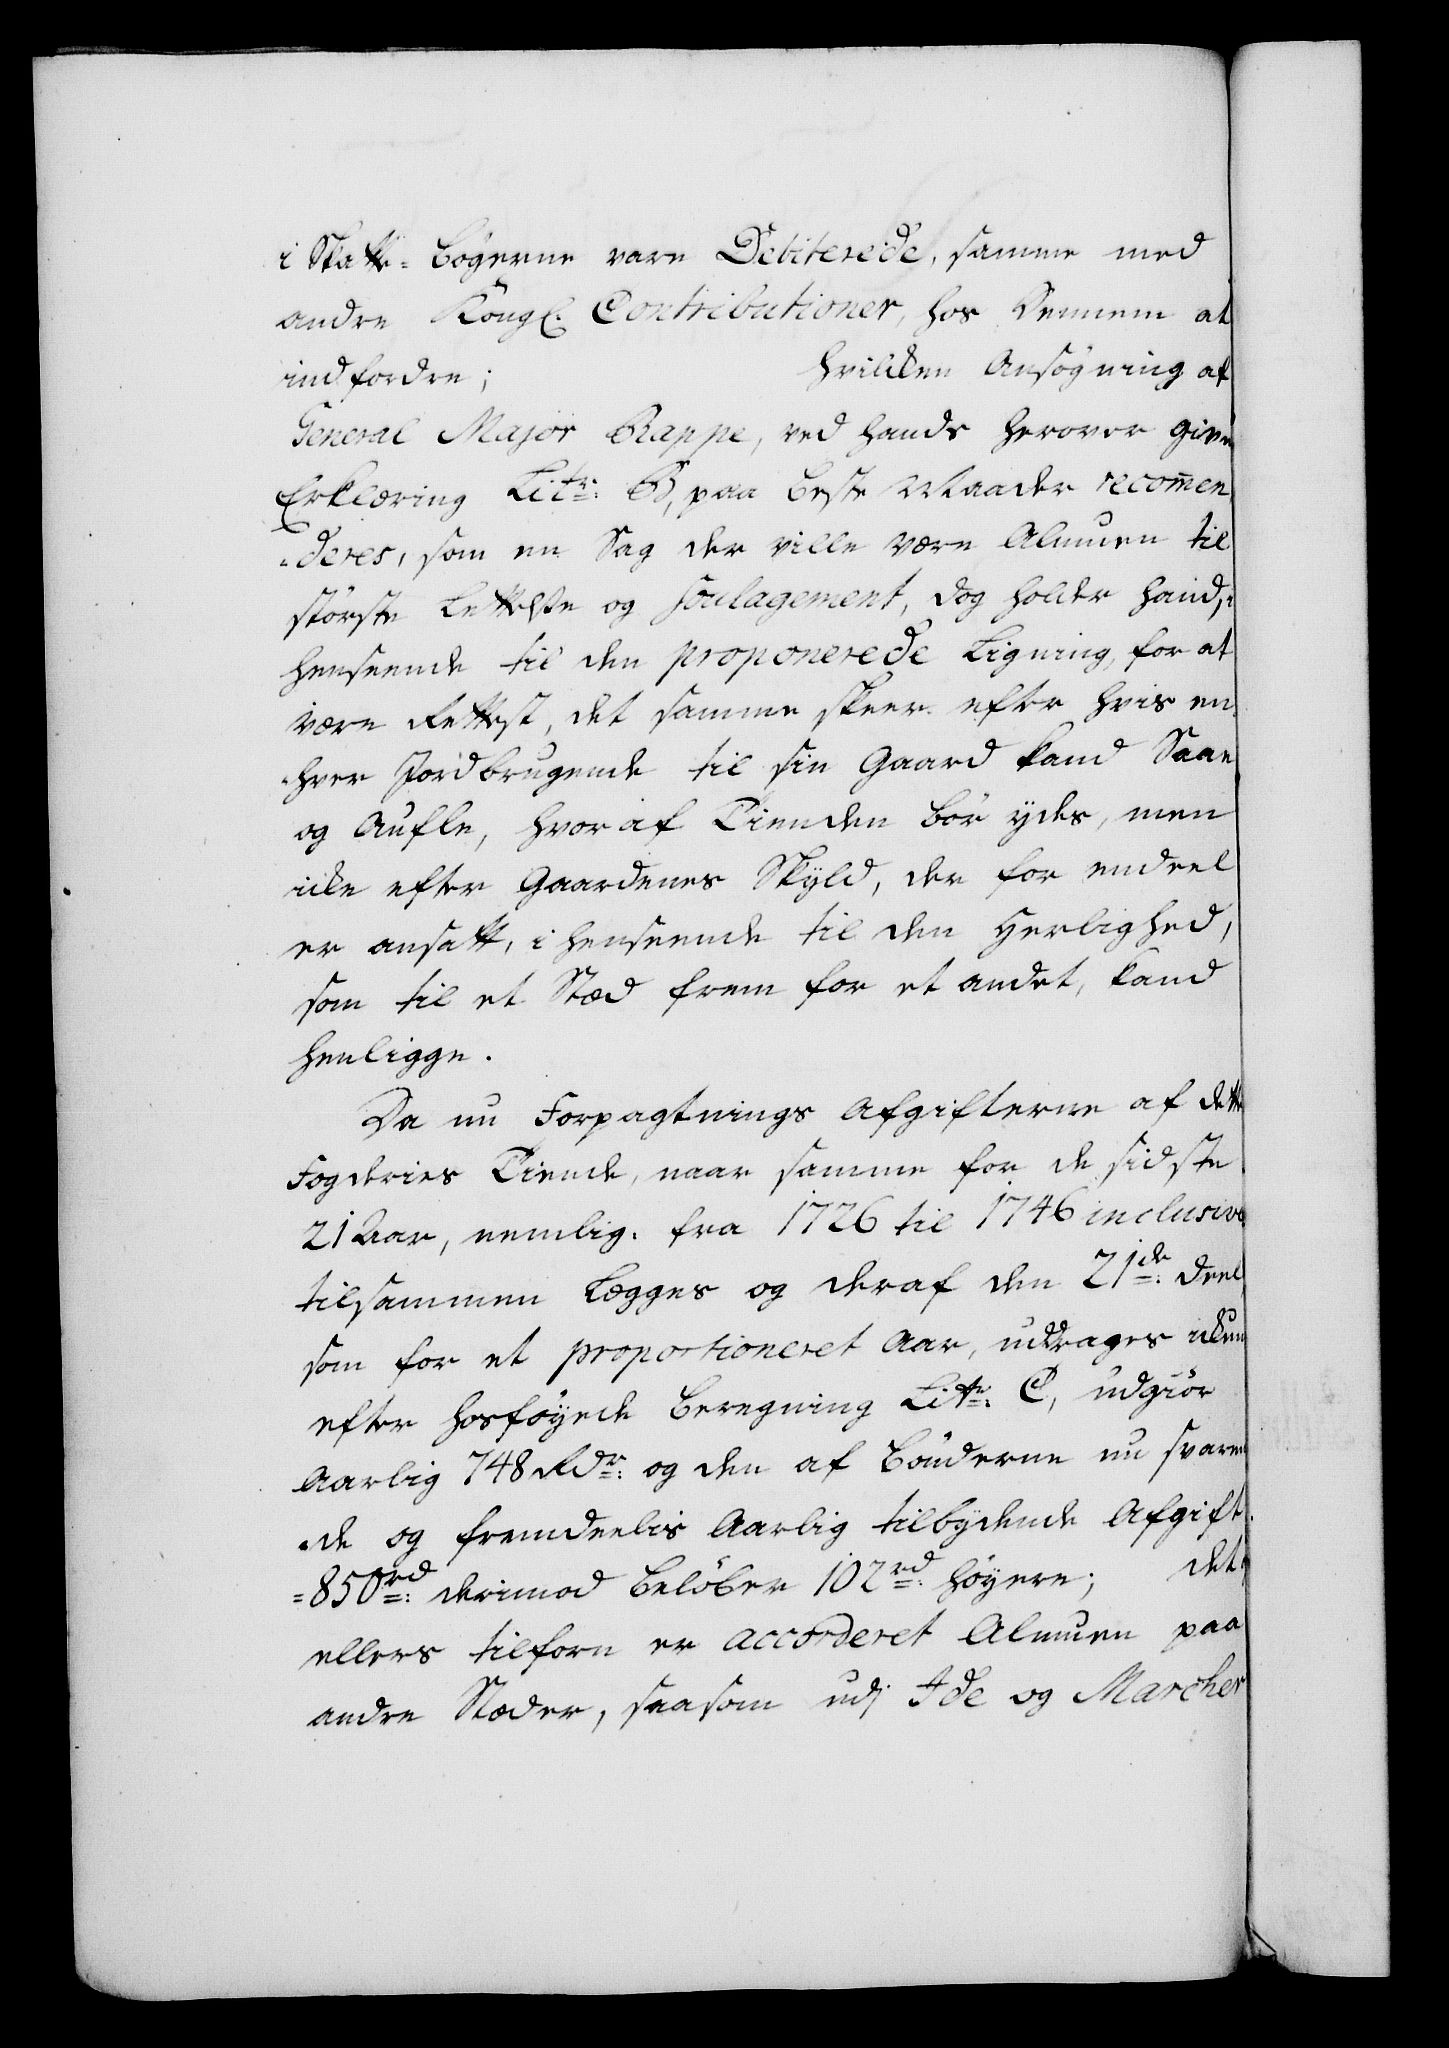 i Skatte-Bøgerne vare Debiterede, samme med
andre Kongl. Contributioner, hos Dennem at
indfordre; hvilken Ansøgning af
General Major Rappe, ved hands herover given
Erklæring Litr: B, paa beste Maader recom̄en
-deres, som en Sag der ville være Almuen til
største Lettelse og soulagement, dog holder hand, i
henseende til den proponerede Ligning, for at
være Rettest, det samme skeer efter hvis en
-hver Jordbrugende til sin Gaard kand Saae
og Aufle, hvoraf Tienden bør ydes, men
icke efter Gaardenes Skyld, der for endeel
er ansatt, i henseende til den Herlighed,
som til et Stæd frem for et andet, kand
henligge.
Da nu Forpagtnings Afgifterne af dette
Fogderies Tiende, naar samme for de sidste
21 Aar, nemlig. fra 1726 til 1746 inclusive
tilsammen Lægges og deraf den 21de: Deel
som for et proportioneret Aar, uddrages ickun
efter hosføyede Beregning Litr: C, udgiør
Aarlig 748 Rdr: og den af Bønderne nu svaren
-de og fremdeelis Aarlig tilbydende Afgift
=850rd: derimod beløber 102rd: høyere; det
ellers tilforn er accorderet Almuen paa
andre Stæder, saasom udj Ide og Marcher